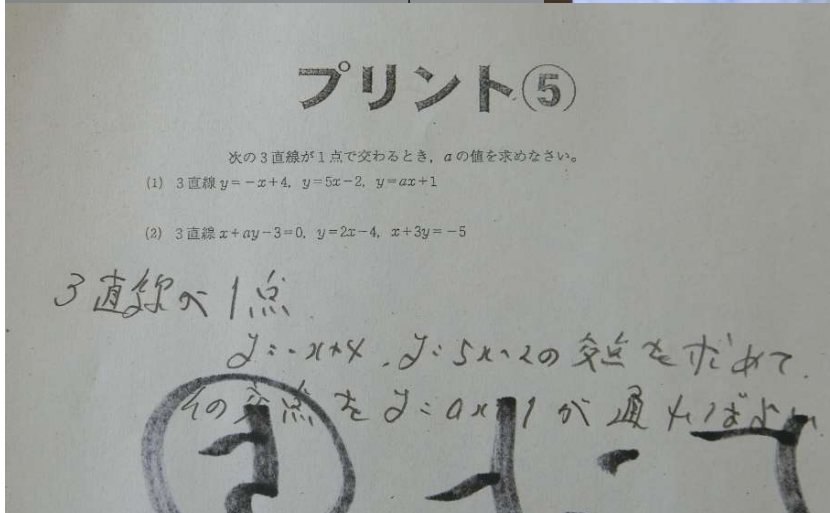 プリント⑤
次の3直線が1点で交わるとき，aの値を求めなさい。
(1) 3直線 y=-x+4, y=5x-2, y=ax+1
(2) 3直線 x+ay-3=0, y=2x-4, x+3y=-5
3直線が1点
y=-x+4, y=5x-2の交点を求めて.
その交点を y=ax+1が通ればよい